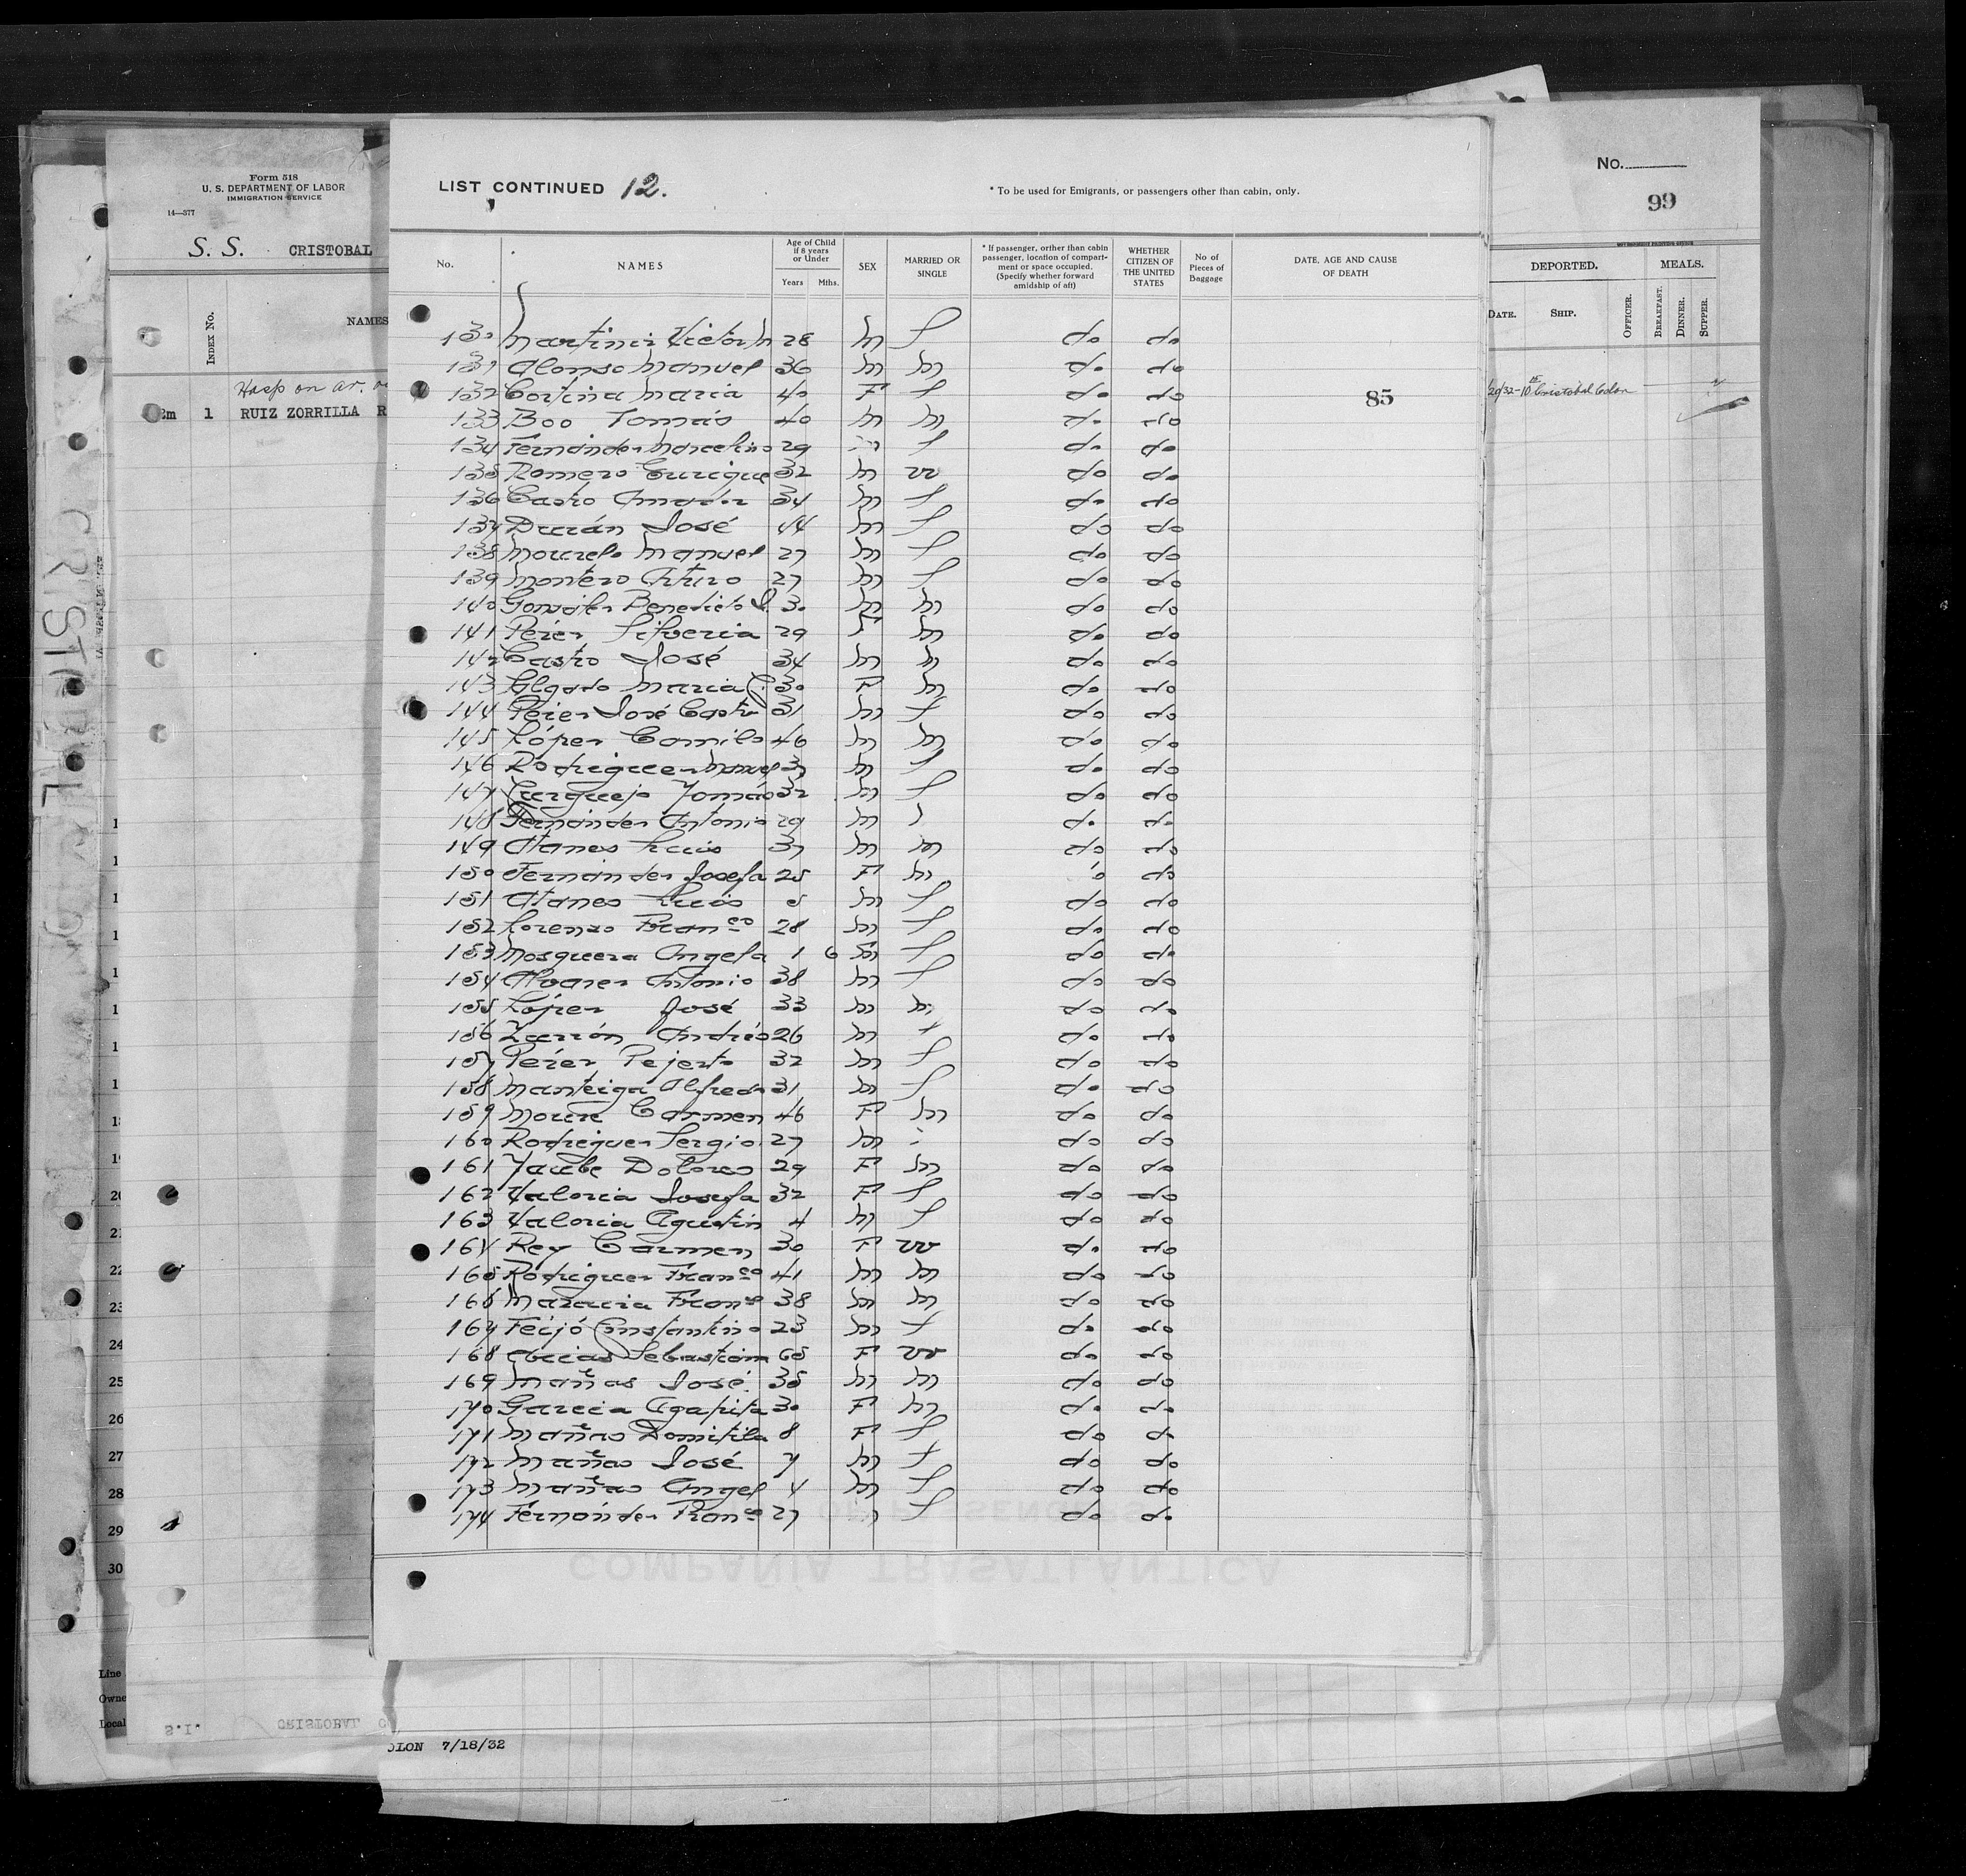 Form 518
U. S. DEPARTMENT OF LABOR
IMMIGRATION SERVICE
14—377
S. S. CRISTOBAL
INDEX No.
NAMES
Hosp on ar.
2m 1 RUIZ ZORRILLA R
LIST CONTINUED 12.
* To be used for Emigrants, or passengers other than cabin, only.
No. NAMES Age of Child if 8 years or Under Years Mths. SEX MARRIED OR SINGLE * If passenger, orther than cabin passenger, location of compart- ment or space occupied. (Specify whether forward amidship of aft) WHETHER CITIZEN OF THE UNITED STATES No of Pieces of Baggage DATE, AGE AND CAUSE OF DEATH
130 Martinez Victor M 28 M S do do
131 Alonso Manuel 36 M M do do
132 Cortina Maria 40 F S do do
85
133 Boo Tomás 40 M M do do
134 Fernández Marcelino 29 M S do do
135 Romero Enrique 32 M W do do
136 Castro Amador 34 M S do do
137 Durán José 44 M S do do
138 Mourelo Manuel 27 M S do do
139 Montero Arturo 27 M S do do
140 González Benedicto S. 30 M M do do
141 Pérez Silveria 29 F M do do
142 Castro José 34 M M do do
143 Maria C. 30 F M do do
144 Pérez José Castro 31 M S do do
145 López Camilo 46 M M do do
146 Rodriguez Manuel 37 M S do do
147 Tomás 32 M S do do
148 Fernández Antonio 29 M S do do
149 Atanes Luis 37 M M do do
150 Fernández Josefa 25 F M do do
151 Atanes Luis 5 M S do do
152 Lorenzo Franco 28 M S do do
153 Mosquera Angela 1 6 S do do
154 Alvarez Antonio 38 M S do do
155 López José 33 M M do do
156 Andrés 26 M S do do
157 Pérez Pejerto 32 M S do do
158 Manteiga Alfredo 31 M S do do
159 Moure Carmen 46 F M do do
160 Rodriguez Sergio 27 M do do
161 Dolores 29 F M do do
162 Valoria Josefa 32 F S do do
163 Valoria Agustin 4 M S do do
164 Rey Carmen 30 F W do do
165 Rodriguez Franco 41 M M do do
166 Franco 38 M M do do
167 Feijó Constantino 23 M S do do
168 Sebastiana 65 F W do do
169 Mañas José 35 M M do do
170 Garcia Agapita 30 F M do do
171 Mañas Domitila 8 F S do do
172 Mañas José 7 M S do do
173 Mañas Angel 4 M S do do
174 Fernández Franco 27 S do do
COMPAÑIA TRASATLANTICA
No.
99
DEPORTED. MEALS.
DATE. SHIP. OFFICER. BREAKFAST. DINNER. SUPPER.
/20/32-10 Cristobal Colon
20
21
22
23
24
25
26
27
28
29
30
Line
Owne
Local
S.I. CRISTOBAL
OLON 7/18/32